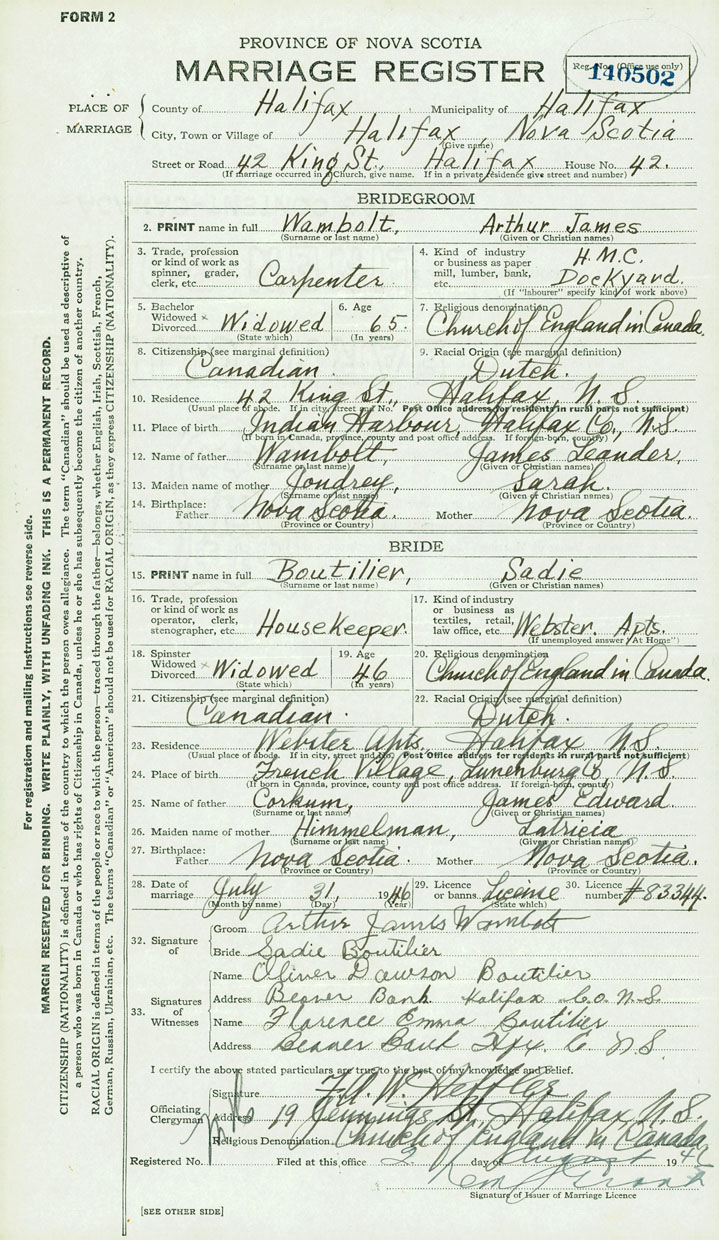 FORM 2
PROVINCE OF NOVA SCOTIA
MARRIAGE REGISTER
Reg. No. (Office use only)
140502
PLACE OF MARRIAGE
County of Halifax Municipality of Halifax
City, Town or Village of Halifax, Nova Scotia
(Give name)
Street or Road 42 King St., Halifax House No. 42.
(If marriage occurred in a Church, give name. If in a private residence give street and number)
BRIDEGROOM
2. PRINT name in full Wambolt, Arthur James
(Surname or last name) (Given or Christian names)
3. Trade, profession or kind of work as spinner, grader, clerk, etc. Carpenter
4. Kind of industry or business as paper mill, lumber, bank, etc. H.M.C. Dockyard.
(If "labourer" specify kind of work above)
5. Bachelor Widowed Divorced Widowed
(State which)
6. Age 65.
(In years)
7. Religious denomination
Church of England in Canada.
8. Citizenship (see marginal definition)
Canadian.
9. Racial Origin (see marginal definition)
Dutch.
10. Residence 42 King St., Halifax, N.S.
(Usual place of abode. If in city, street and No. Post Office address for residents in rural parts not sufficient)
11. Place of birth Indian Harbour, Halifax Co., N.S.
(If born in Canada, province, county and post office address. If foreign-born, country)
12. Name of father Wambolt, James Leander,
(Surname or last name) (Given or Christian names)
13. Maiden name of mother Joudrey, Sarah.
(Surname or last name) (Given or Christian names)
14. Birthplace: Father Nova Scotia. Mother Nova Scotia.
(Province or Country) (Province or Country)
BRIDE
15. PRINT name in full Boutilier, Sadie
(Surname or last name) (Given or Christian names)
16. Trade, profession or kind of work as operator, clerk, stenographer, etc. Housekeeper.
17. Kind of industry or business as textiles, retail, law office, etc. Webster. Apts.
(If unemployed answer "At Home")
18. Spinster Widowed Divorced Widowed
(State which)
19. Age 46
(In years)
20. Religious denomination
Church of England in Canada.
21. Citizenship (see marginal definition)
Canadian.
22. Racial Origin (see marginal definition)
Dutch.
23. Residence Webster Apts. Halifax N.S.
(Usual place of abode. If in city, street and No. Post Office address for residents in rural parts not sufficient)
24. Place of birth French Village, Lunenburg Co., N.S.
(If born in Canada, province, county and post office address. If foreign-born, country)
25. Name of father Corkum, James Edward.
(Surname or last name) (Given or Christian names)
26. Maiden name of mother Himmelman, Latricia
(Surname or last name) (Given or Christian names)
27. Birthplace: Father Nova Scotia. Mother Nova Scotia.
(Province or Country) (Province or Country)
28. Date of marriage July 31, 1946
(Month by name) (Day) (Year)
29. Licence or banns. License
(State which)
30. Licence number #83344.
32. Signature of
Groom Arthur James Wambolt
Bride Sadie Boutilier
33. Signatures of Witnesses
Name Oliver Dawson Boutilier
Address Beaver Bank Halifax Co. N.S.
Name Florence Emma Boutilier
Address Beaver Bank Hfx. Co. N.S.
I certify the above stated particulars are true to the best of my knowledge and belief.
Officiating Clergyman
Signature W. Heffler
Address 19 Jennings St. Halifax N.S.
Religious Denomination Church of England in Canada
Registered No. Filed at this office 2 day of August 19
Signature of Issuer of Marriage Licence
[SEE OTHER SIDE]
For registration and mailing instructions see reverse side.
MARGIN RESERVED FOR BINDING. WRITE PLAINLY, WITH UNFADING INK. THIS IS A PERMANENT RECORD.
CITIZENSHIP (NATIONALITY) is defined in terms of the country to which the person owes allegiance. The term "Canadian" should be used as descriptive of
a person who was born in Canada or who has rights of Citizenship in Canada, unless he or she has subsequently become the citizen of another country.
RACIAL ORIGIN is defined in terms of the people or race to which the person—traced through the father—belongs, whether English, Irish, Scottish, French,
German, Russian, Ukrainian, etc. The terms "Canadian" or "American" should not be used for RACIAL ORIGIN, as they express CITIZENSHIP (NATIONALITY).